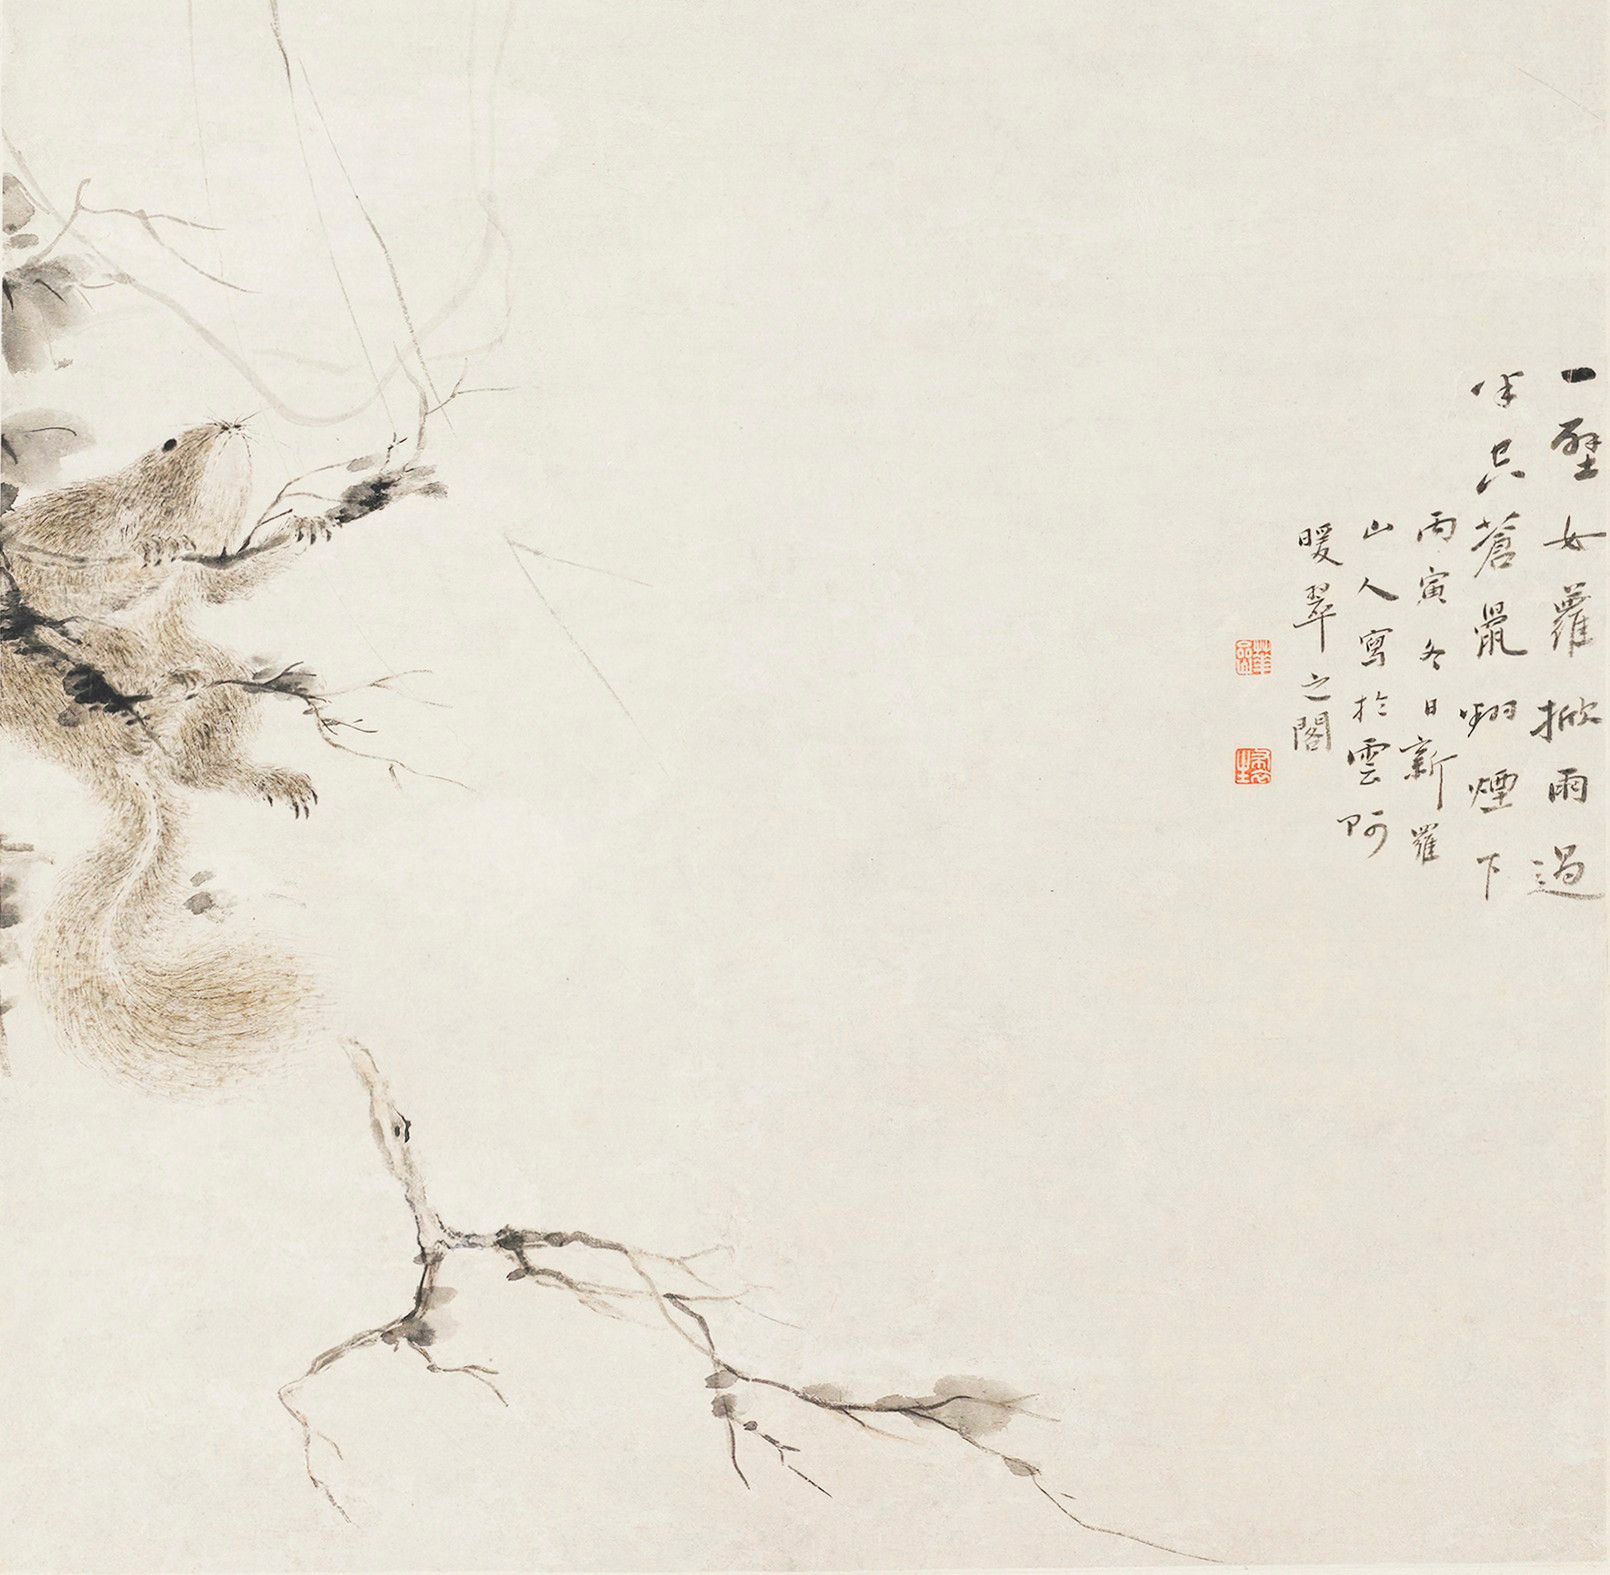 一壁女蘿掀雨過
半只蒼鼠翊煙下
丙寅冬日新羅
山人寫於雲阿
暖翠之閣
華嵒